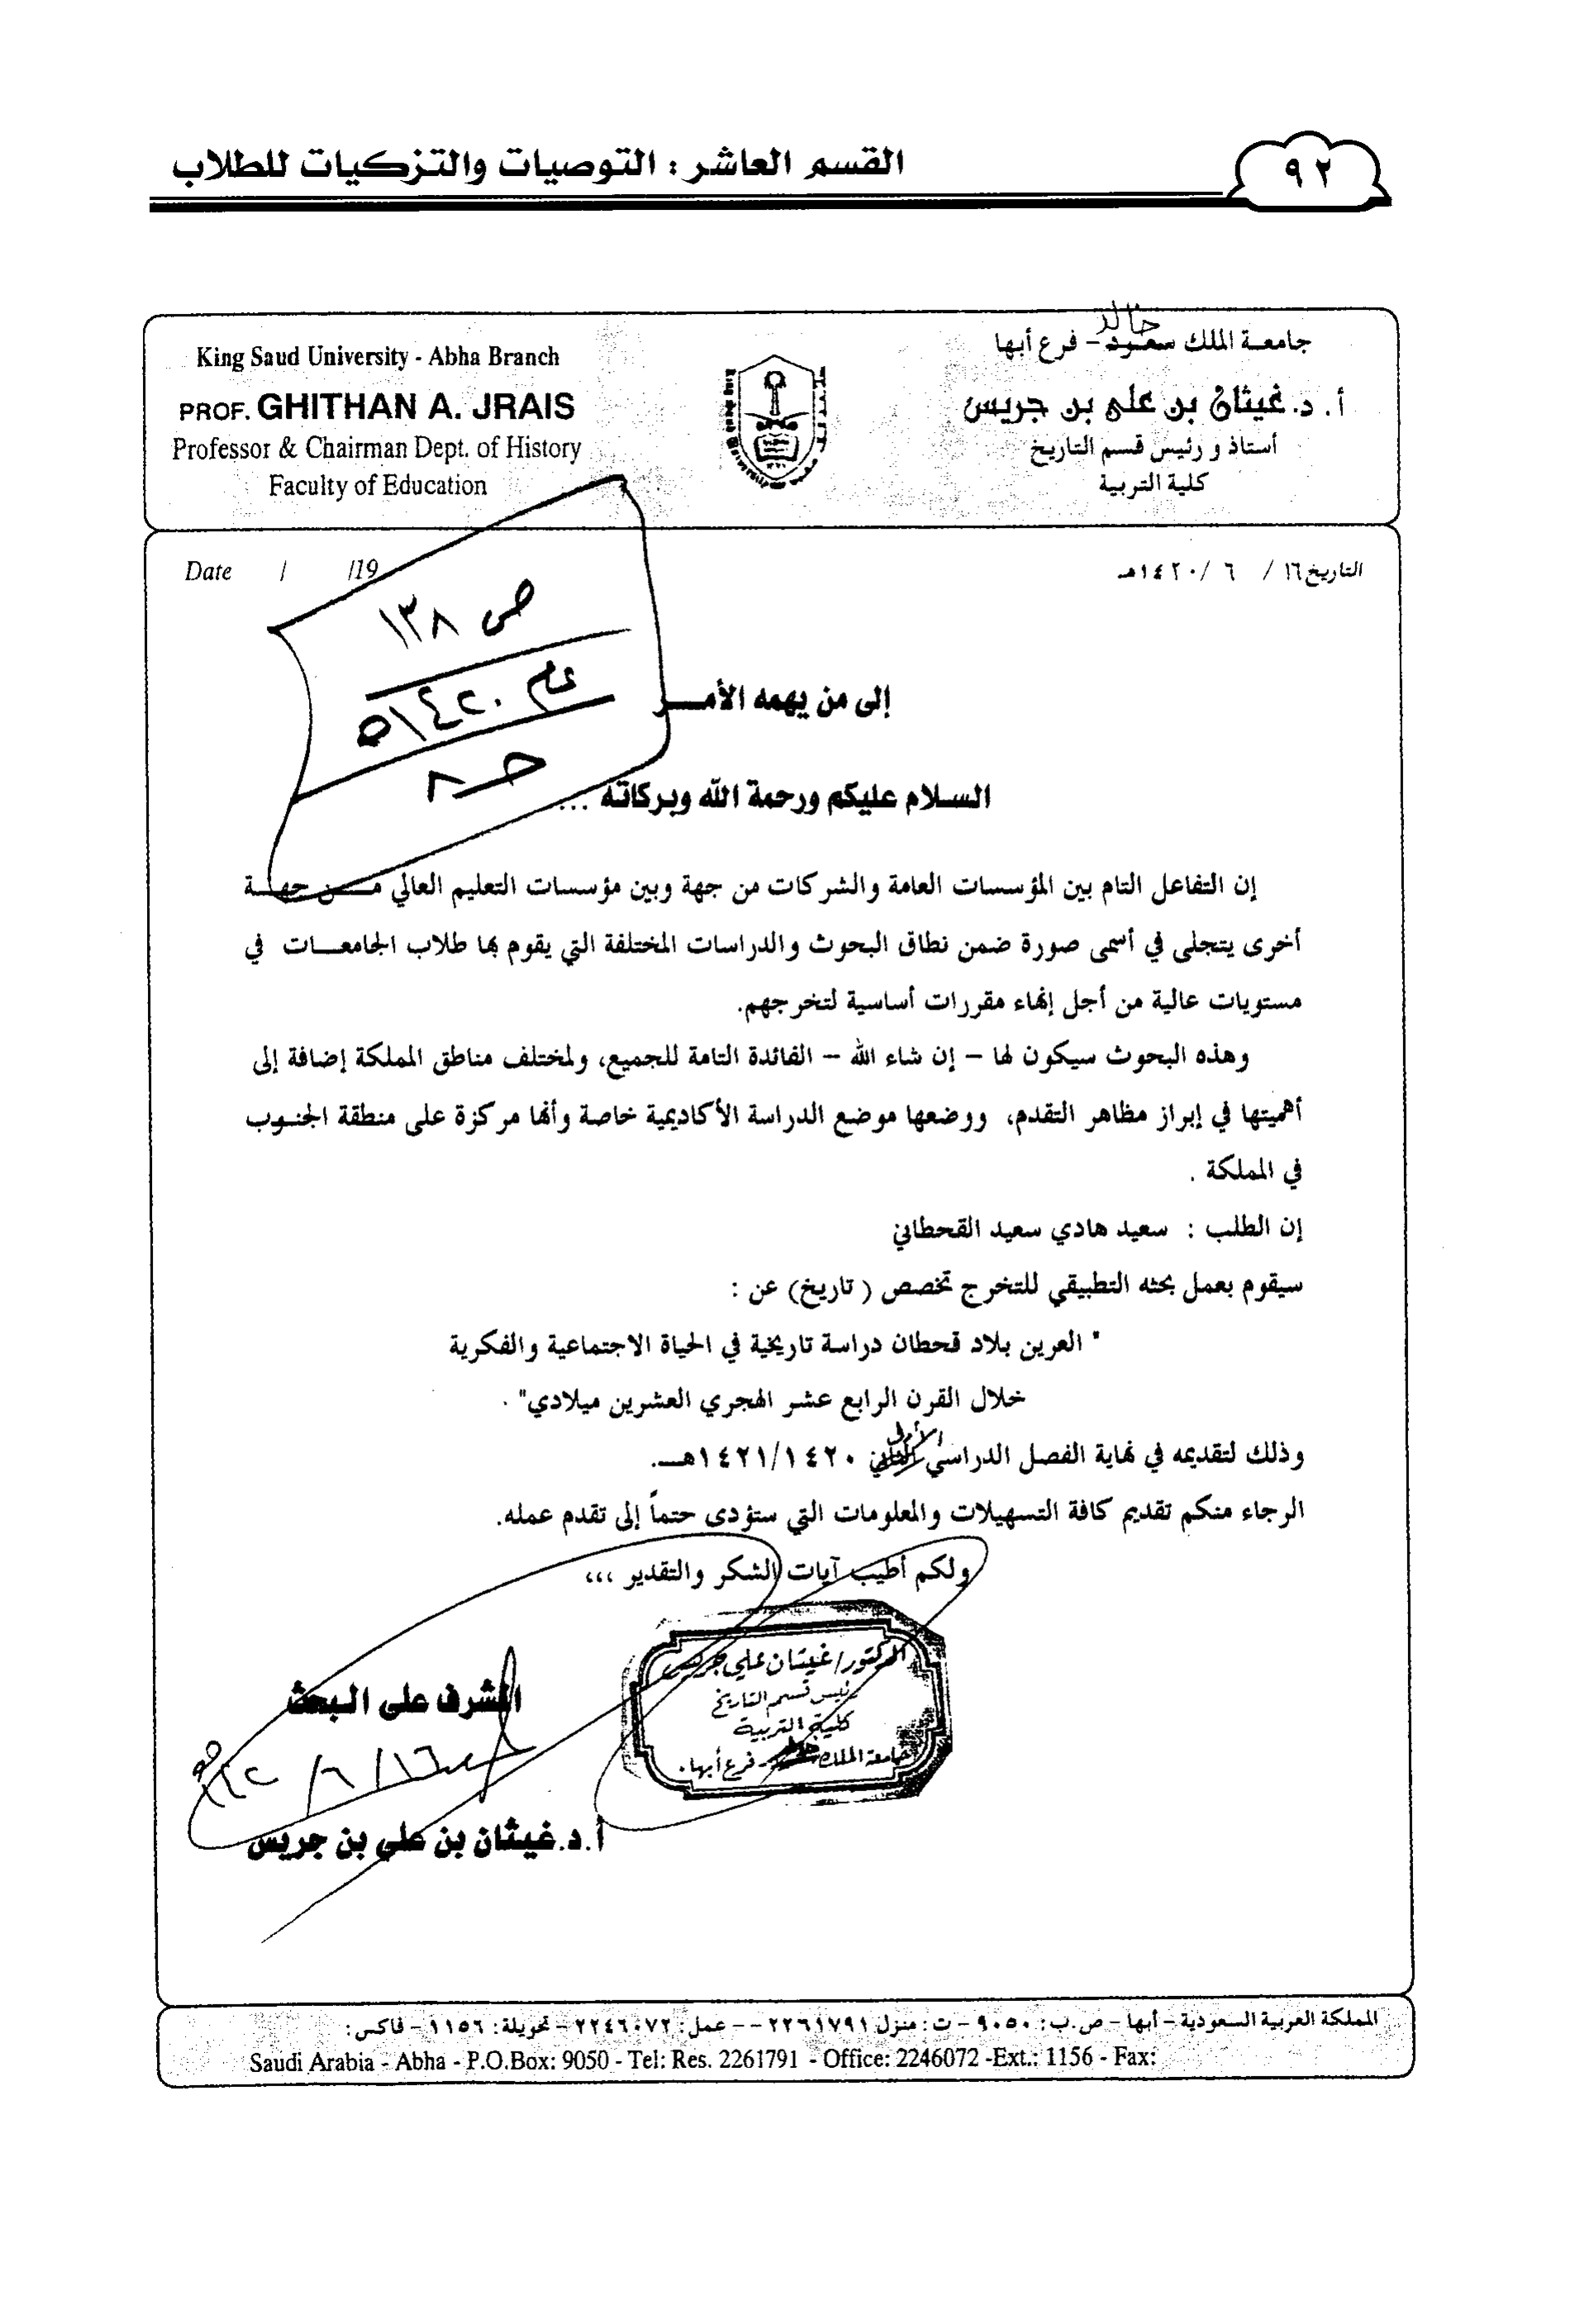 القسم العاشر : التوصيات والتزكيات للطلاب
٩٢
خالد
جامعة الملك سعود - فرع أبها
أ. د. غيثان بن علي بن جريس
أستاذ و رئيس قسم التاريخ
كلية التربية
King Saud University - Abha Branch
PROF. GHITHAN A. JRAIS
Professor & Chairman Dept. of History
Faculty of Education
التاريخ ١٦ / ٦ /١٤٢٠هـ
Date / /19
ص ١٣٨
عام ١٤٢٠هـ
حـ ٨
إلى من يهمه الأمــر
السلام عليكم ورحمة الله وبركاته ...
إن التفاعل التام بين المؤسسات العامة والشركات من جهة وبين مؤسسات التعليم العالي مــن جهــة
أخرى يتجلى في أسمى صورة ضمن نطاق البحوث والدراسات المختلفة التي يقوم بها طلاب الجامعــات في
مستويات عالية من أجل إنهاء مقررات أساسية لتخرجهم.
وهذه البحوث سيكون لها – إن شاء الله – الفائدة التامة للجميع، ولمختلف مناطق المملكة إضافة إلى
أهميتها في إبراز مظاهر التقدم، ووضعها موضع الدراسة الأكاديمية خاصة وأنها مركزة على منطقة الجنوب
في المملكة .
إن الطلب : سعيد هادي سعيد القحطاني
سيقوم بعمل بحثه التطبيقي للتخرج تخصص ( تاريخ) عن :
" العرين بلاد قحطان دراسة تاريخية في الحياة الاجتماعية والفكرية
خلال القرن الرابع عشر الهجري العشرين ميلادي" .
الأول
وذلك لتقديمه في نهاية الفصل الدراسي الثاني ١٤٢١/١٤٢٠هــ.
الرجاء منكم تقديم كافة التسهيلات والمعلومات التي ستؤدى حتماً إلى تقدم عمله.
ولكم أطيب آيات الشكر والتقدير ،،،
الدكتور/ غيثان علي جريس
رئيس قسم التاريخ
كلية التربية
جامعة الملك خالد - فرع أبها.
المشرف على البحث
أ.د.غيثان بن علي بن جريس
المملكة العربية السعودية - أبها - ص.ب: ٩٠٥٠ - ت: منزل ٢٢٦١٧٩١ -- عمل: ٢٢٤٦٠٧٢ - تحويلة: ١١٥٦ - فاكس:
Saudi Arabia - Abha - P.O.Box: 9050 - Tel: Res. 2261791 - Office: 2246072 -Ext.: 1156 - Fax: